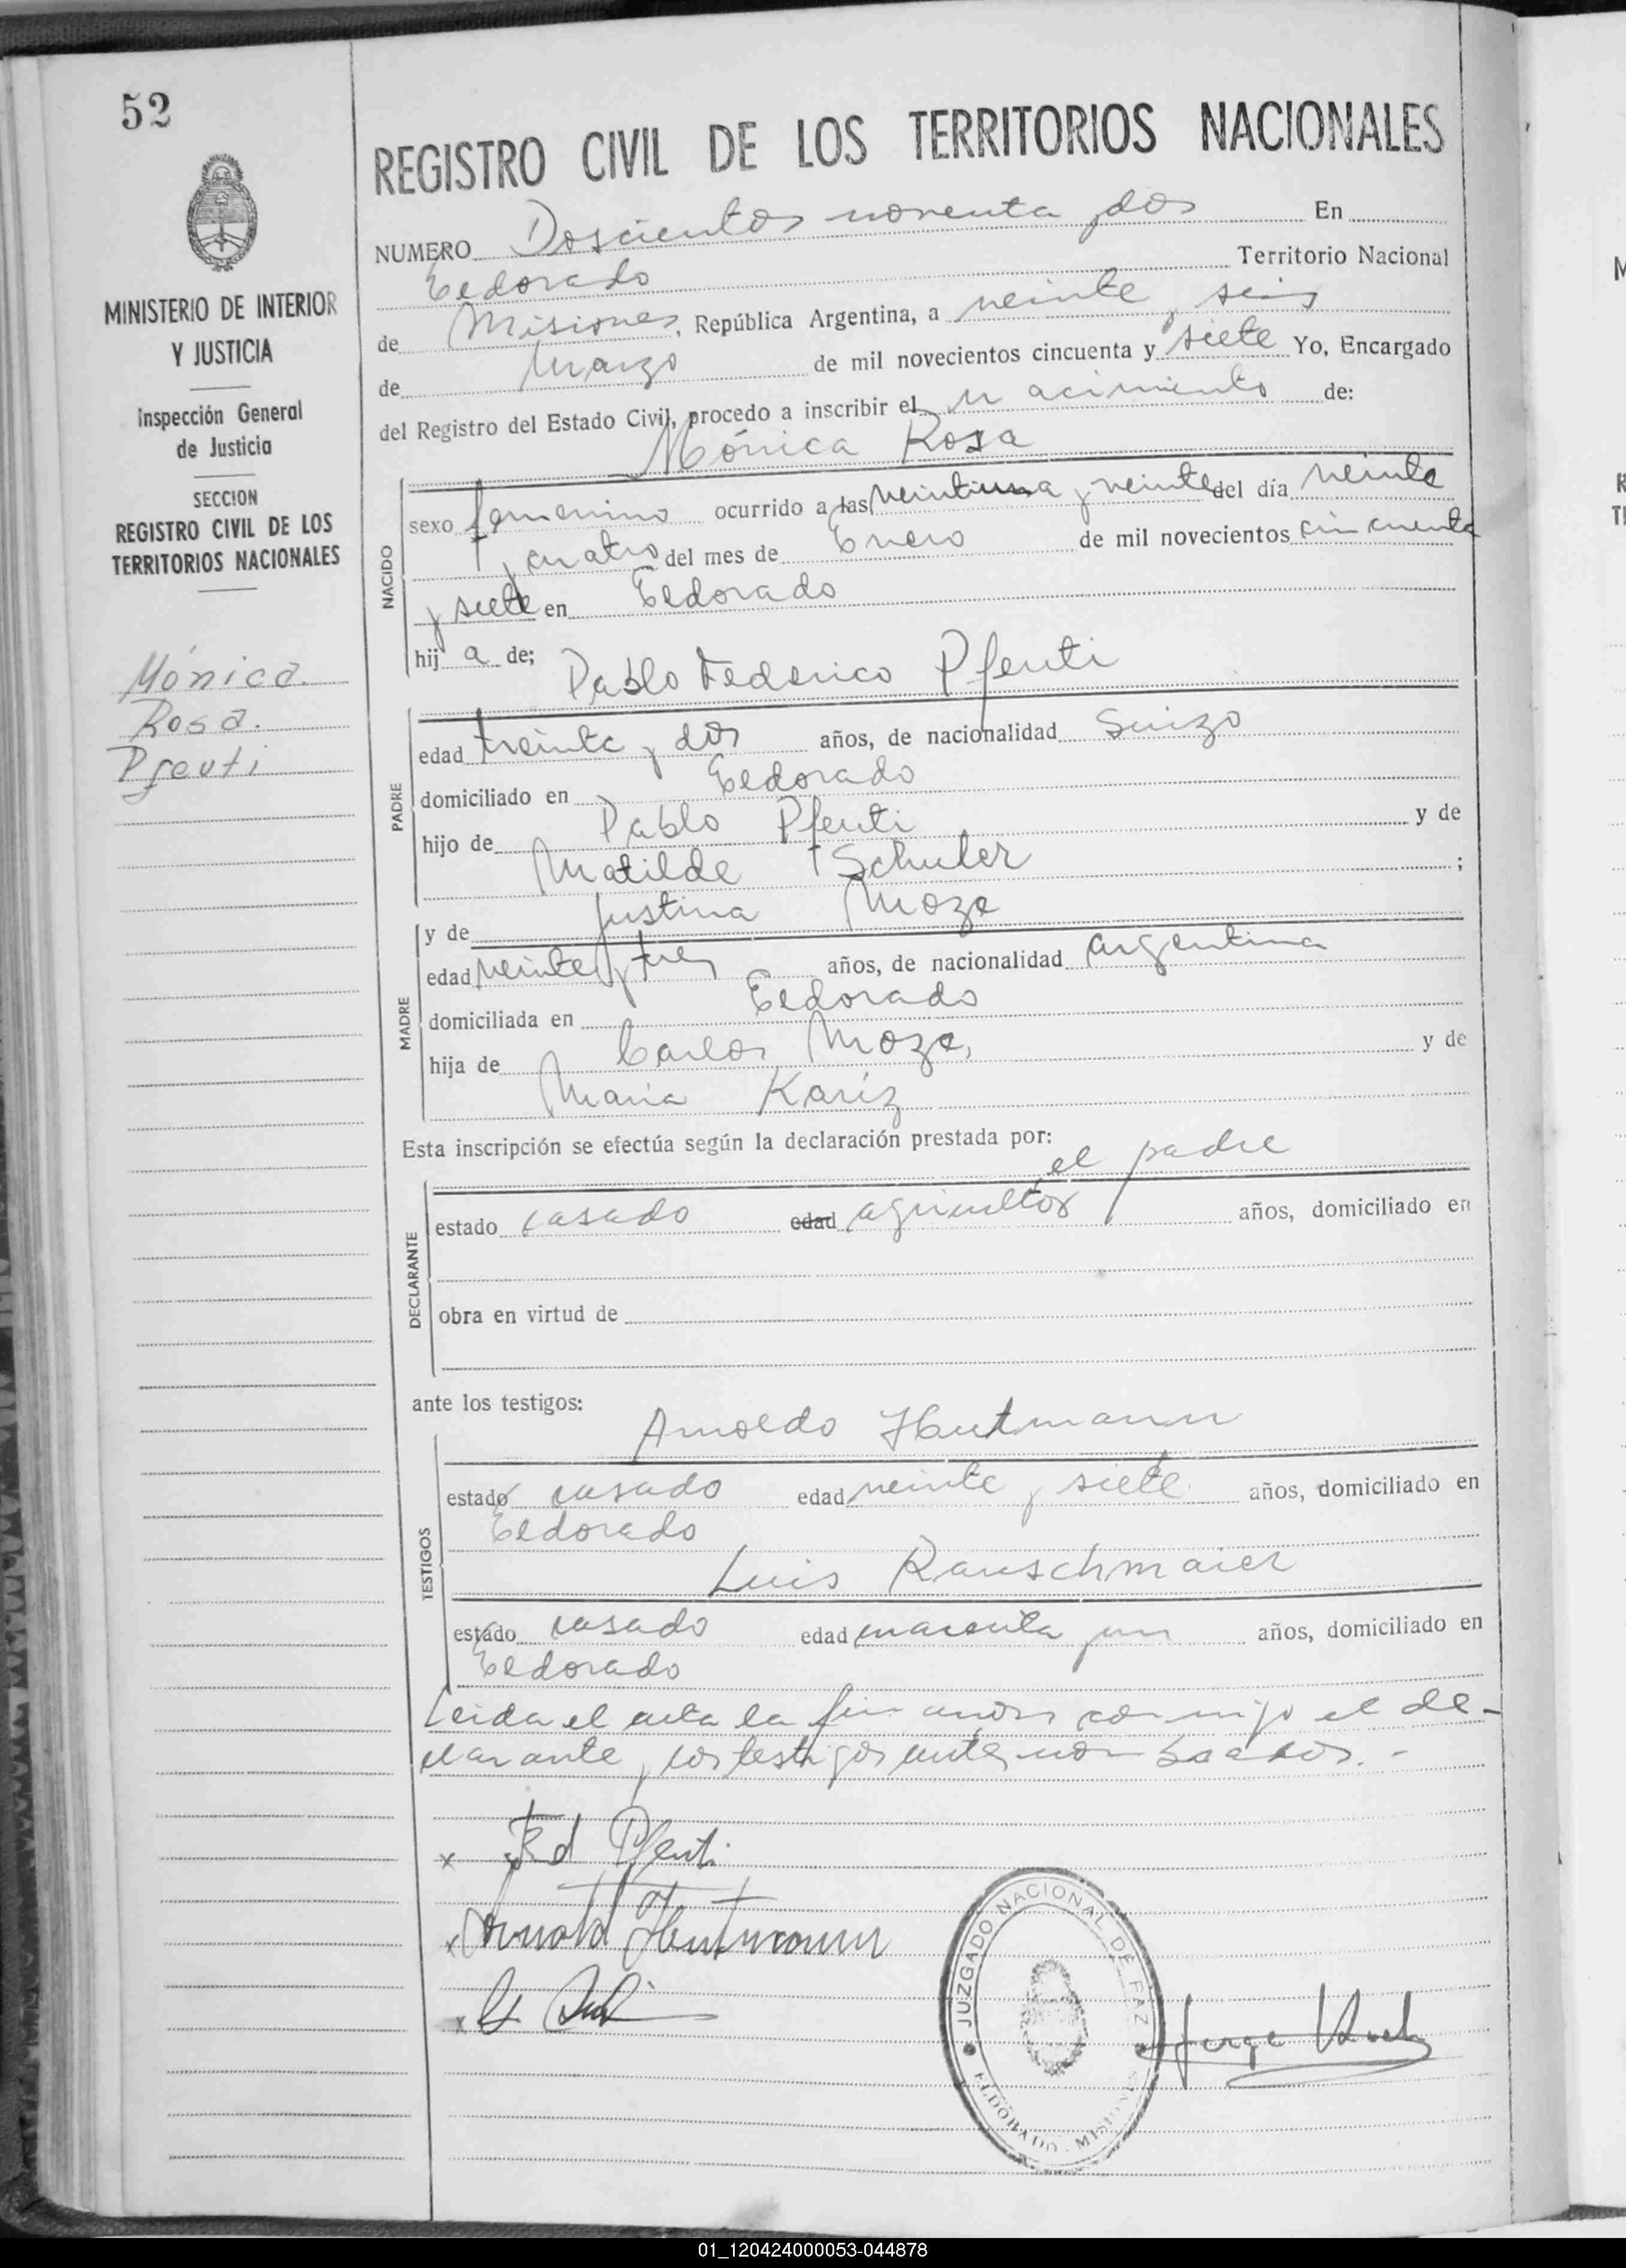 52
MINISTERIO DE INTERIOR
Y JUSTICIA
Inspección General
de Justicia
SECCION
REGISTRO CIVIL DE LOS
TERRITORIOS NACIONALES
Mónica.
Rosa.
Pfeuti
REGISTRO CIVIL DE LOS TERRITORIOS NACIONALES
NUMERO Doscientos noventa y dos En
Eldorado Territorio Nacional
de Misiones, República Argentina, a veinte y seis
de Marzo de mil novecientos cincuenta y siete Yo, Encargado
del Registro del Estado Civil, procedo a inscribir el nacimiento de:
Mónica Rosa
NACIDO
sexo femenino ocurrido a las veintiuna y veinte del día veinte
y cuatro del mes de Enero de mil novecientos cincuenta
y siete en Eldorado
hij a de;
Pablo Federico Pfeuti
PADRE
edad treinta y dos años, de nacionalidad Suizo
domiciliado en Eldorado
hijo de Pablo Pfeuti y de
Matilde Schuler ;
MADRE
y de Justina Moze
edad veinte y tres años, de nacionalidad argentina
domiciliada en Eldorado
hija de Carlos Moze, y de
María Kariz
Esta inscripción se efectúa según la declaración prestada por:
el padre
DECLARANTE
estado casado edad agricultor años, domiciliado en
obra en virtud de
ante los testigos:
Arnoldo Hentmann
TESTIGOS
estado casado edad veinte y siete años, domiciliado en
Eldorado
Luis Rauschmaier
estado casado edad cuarenta y un años, domiciliado en
Eldorado
Leida el acta la firmaron conmigo el de-
clarante y los testigos antes nombrados. -
x Fd Pfeuti
x Arnold Hentmann
x
JUZGADO NACIONAL DE PAZ
ELDORADO - MISIONES
Jorge
01_120424000053-044878